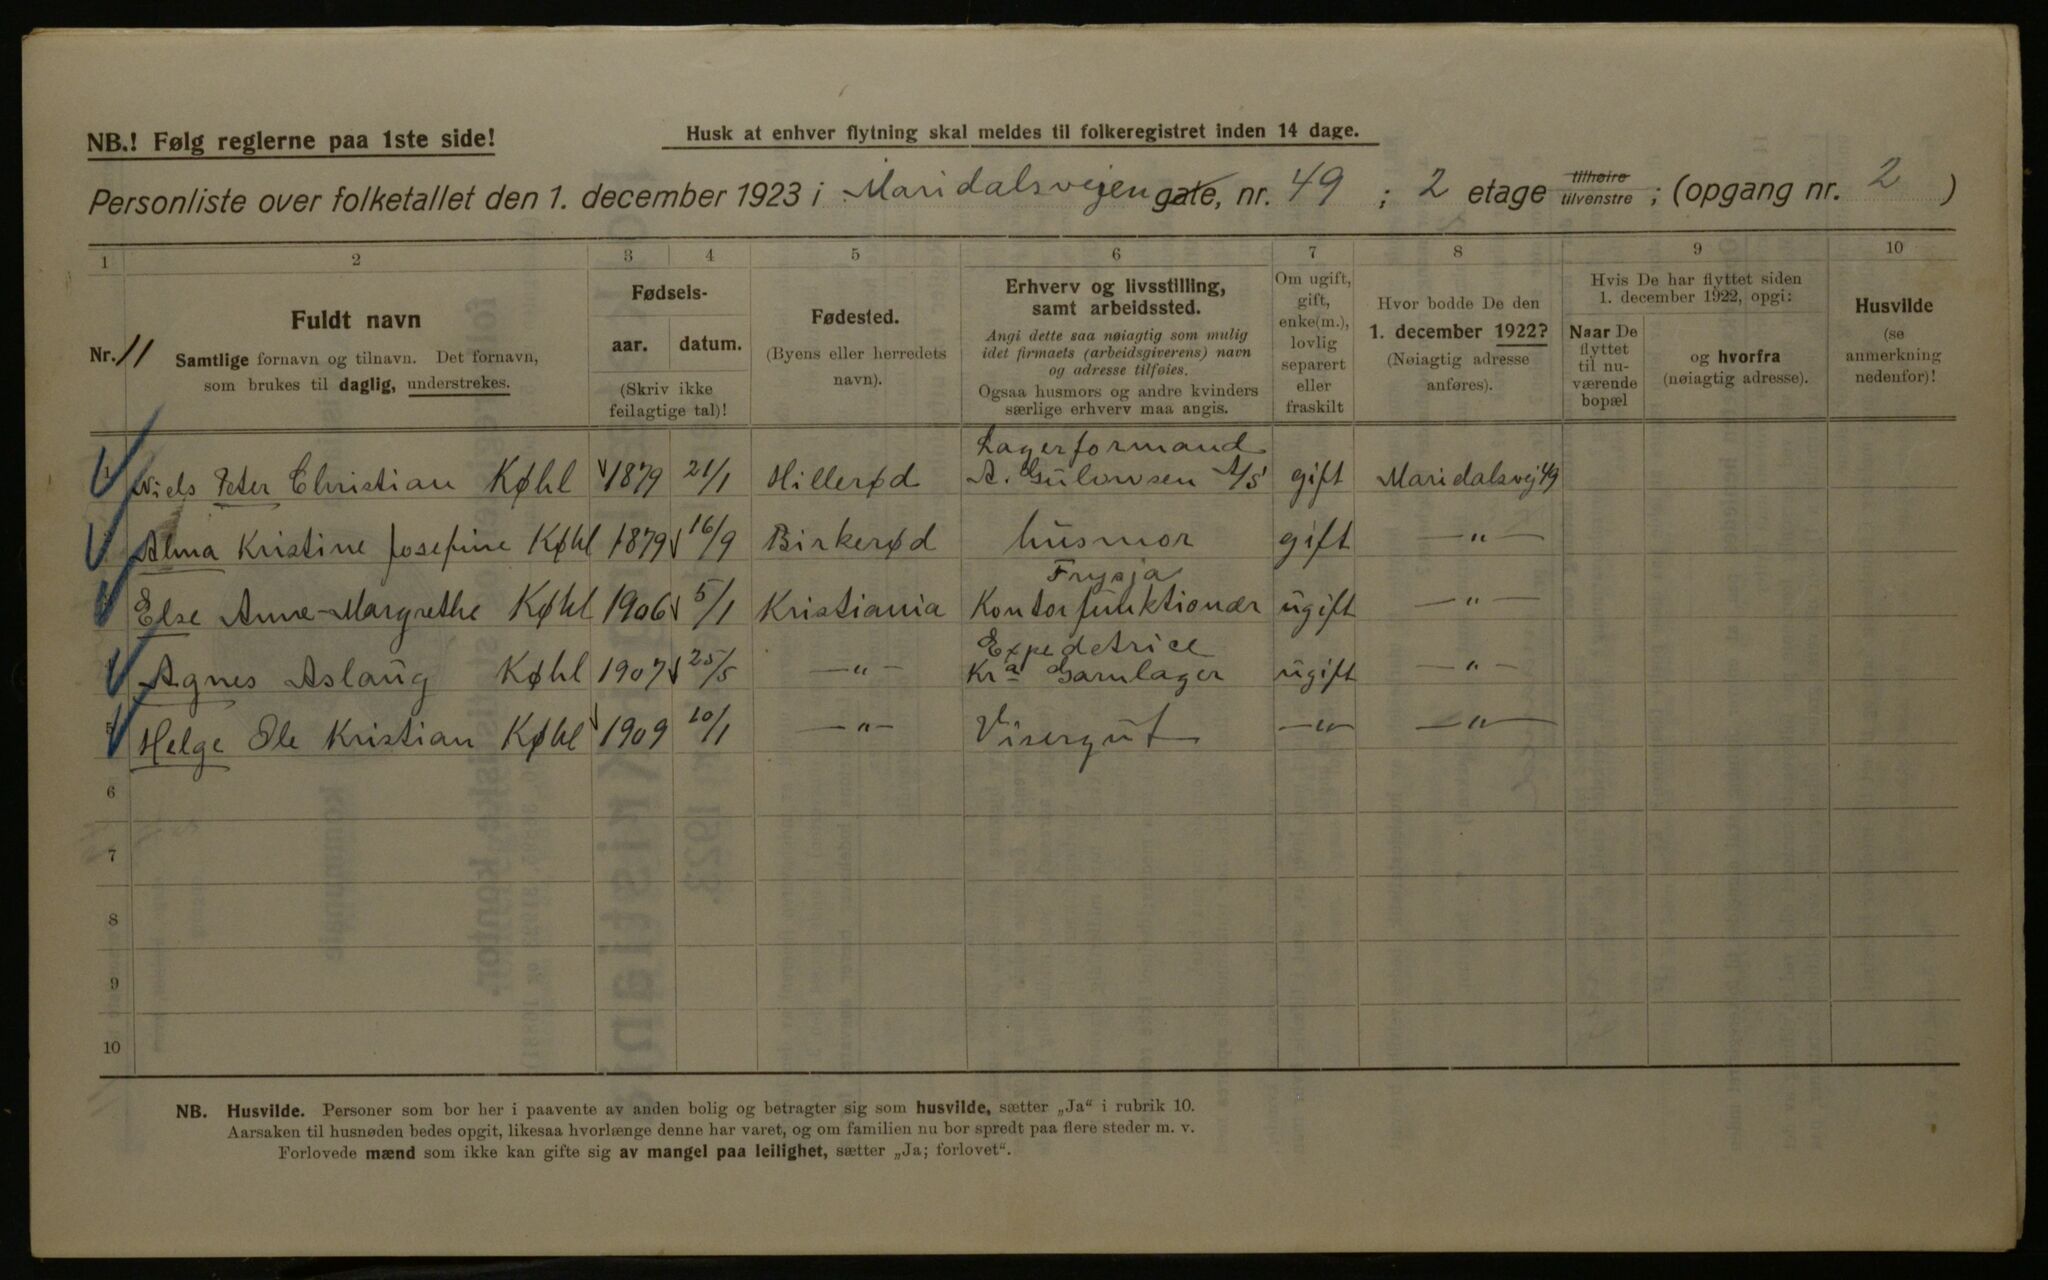 NB.! Følg reglerne paa 1ste side!
Husk at enhver flytning skal meldes til folkeregistret inden 14 dage.
Personliste over folketallet den 1. december 1923 i Maridalsvejen gate, nr. 49 ; 2 etage tilhøire tilvenstre ; (opgang nr. 2 )
1 2 3 4 5 6 7 8 9 10
Nr. 11
Fuldt navn
Samtlige fornavn og tilnavn. Det fornavn,
som brukes til daglig, understrekes.
Fødsels-
aar. datum.
(Skriv ikke
feilagtige tal)!
Fødested.
(Byens eller herredets
navn).
Erhverv og livsstilling,
samt arbeidssted.
Angi dette saa nøiagtig som mulig
idet firmaets (arbeidsgiverens) navn
og adresse tilføies.
Ogsaa husmors og andre kvinders
særlige erhverv maa angis.
Om ugift,
gift,
enke(m.),
lovlig
separert
eller
fraskilt
Hvor bodde De den
1. december 1922?
(Nøiagtig adresse
anføres).
Hvis De har flyttet siden
1. december 1922, opgi:
Naar De
flyttet
til nu-
værende
bopæl
og hvorfra
(nøiagtig adresse).
Husvilde
(se
anmerkning
nedenfor)!
Lagerformand
Niels Peter Christian Køhl 1879 21/1 Hillerød A. Gulowsen A/S gift Maridalsvej 49
Alma Kristine Josefine Køhl 1879 16/9 Birkerød husmor gift — " —
Frysja
Else Anne-Margrethe Køhl 1906 5/1 Kristiania Kontorfunktionær ugift — " —
Expedetrice
Agnes Aslaug Køhl 1907 25/5 — " — Kra Garnlager ugift — " —
5 Helge Ole Kristian Køhl 1909 10/1 — " — Visergut — " — — " —
6
7
8
9
10
NB. Husvilde. Personer som bor her i paavente av anden bolig og betragter sig som husvilde, sætter „Ja“ i rubrik 10.
Aarsaken til husnøden bedes opgit, likesaa hvorlænge denne har varet, og om familien nu bor spredt paa flere steder m. v.
Forlovede mænd som ikke kan gifte sig av mangel paa leilighet, sætter „Ja; forlovet“.